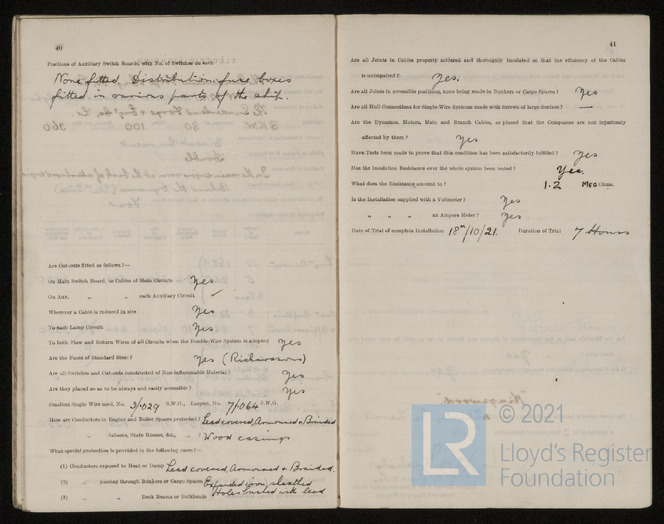 40
Positions of Auxiliary Switch Boards, with No. of Switches on each
None fitted. Distribution fuse boxes
fitted in various parts of the ship.
Are Cut-outs fitted as follows?—
On Main Switch Board, to Cables of Main Circuits Yes
On Aux. „ „ each Auxiliary Circuit
Wherever a Cable is reduced in size Yes
To each Lamp Circuit Yes
To both Flow and Return Wires of all Circuits when the Double-Wire System is adopted Yes
Are the Fuses of Standard Sizes? Yes (Richardsons)
Are all Switches and Cut-outs constructed of Non-inflammable Material? Yes
Are they placed so as to be always and easily accessible? Yes
Smallest Single Wire used, No. 3/.029 S.W.G., Largest, No. 7/.064 S.W.G.
How are Conductors in Engine and Boiler Spaces protected? Lead covered, Armoured & Braided
„ „ Saloons, State Rooms, &c., „ ? Wood casings
What special protection is provided in the following cases?—
(1) Conductors exposed to Heat or Damp Lead covered, Armoured & Braided.
(2) „ passing through Bunkers or Cargo Spaces Expanded iron sheathed
(3) „ „ Deck Beams or Bulkheads Holes bushed with lead
41
Are all Joints in Cables properly soldered and thoroughly insulated so that the efficiency of the Cables
is unimpaired? Yes.
Are all Joints in accessible positions, none being made in Bunkers or Cargo Spaces? Yes
Are all Hull Connections for Single-Wire Systems made with Screws of large Surface? —
Are the Dynamos, Motors, Main and Branch Cables, so placed that the Compasses are not injuriously
affected by them? Yes
Have Tests been made to prove that this condition has been satisfactorily fulfilled? Yes
Has the Insulation Resistance over the whole system been tested? Yes.
What does the Resistance amount to? 1.2 Meg Ohms.
Is the Installation supplied with a Voltmeter? Yes
„ „ „ an Ampere Meter? Yes
Date of Trial of complete Installation 18th/10/21. Duration of Trial 7 Hours
© 2021
LR
Lloyd's Register
Foundation